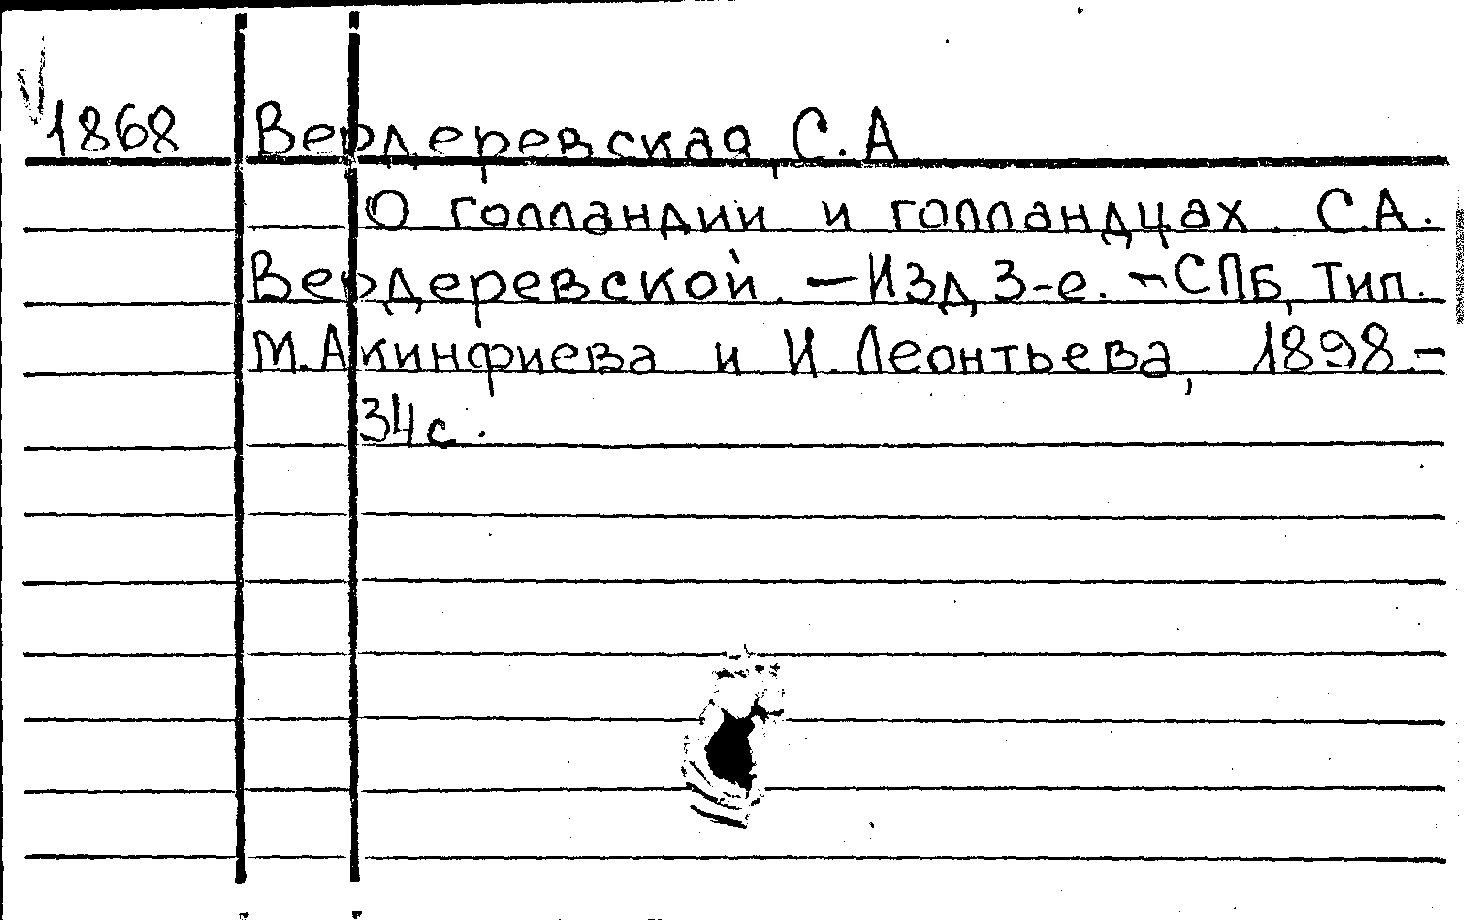 1868 Вердеревская, С.А
О голландии и голландцах. С.А.
Вердеревской. – Изд, 3-е. – СПБ, Тип.
М.Акинфиева и И.Леонтьева, 1898.–
34с.